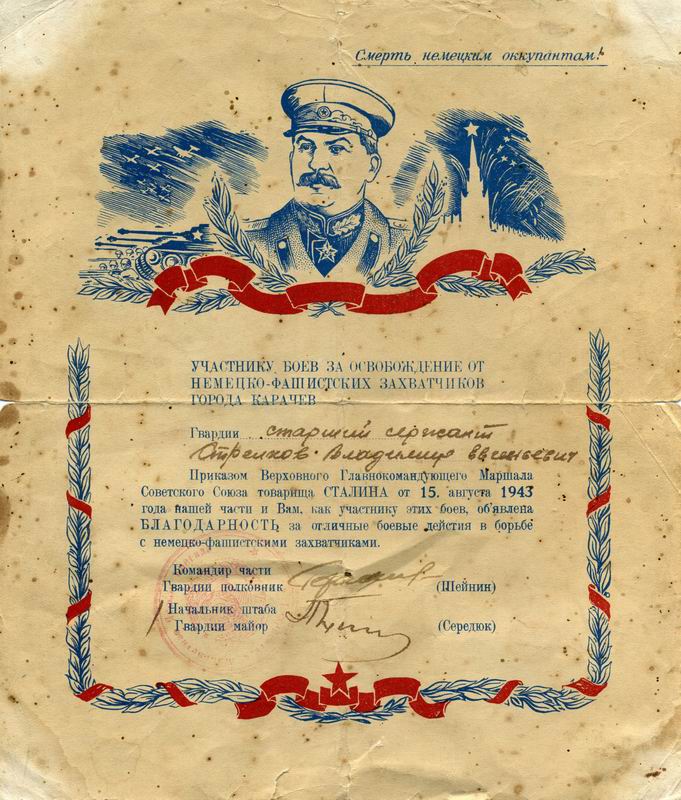 Смерть немецким оккупантам!
УЧАСТНИКУ БОЕВ ЗА ОСВОБОЖДЕНИЕ ОТ
НЕМЕЦКО-ФАШИСТСКИХ ЗАХВАТЧИКОВ
ГОРОДА КАРАЧЕВ
Гвардии старший сержант
Владимир
Приказом Верховного Главнокомандующего Маршала
Советского Союза товарища СТАЛИНА от 15. августа 1943
года нашей части и Вам, как участнику этих боев, об'явлена
БЛАГОДАРНОСТЬ за отличные боевые дейстия в борьбе
с немецко-фашистскими захватчиками.
Командир части
Гвардии полковник (Шейнин)
Начальник штаба
Гвардии майор (Середюк)